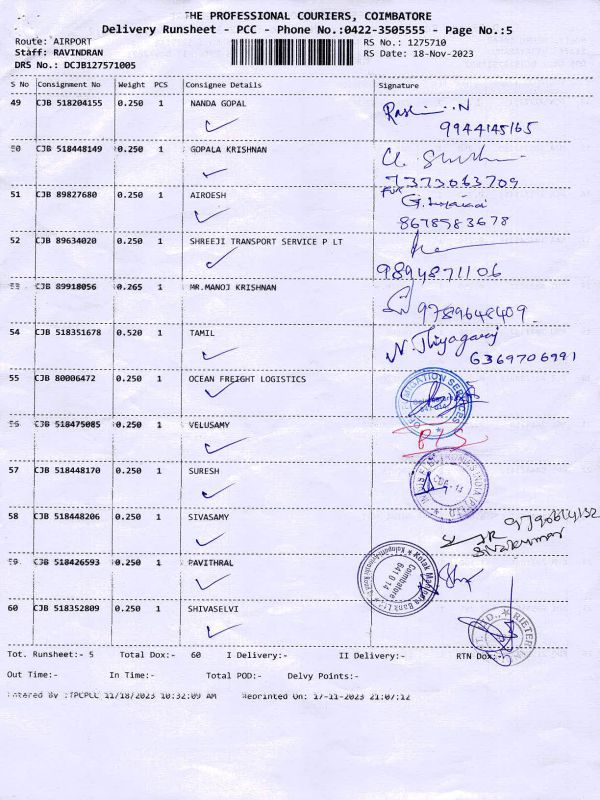 THE PROFESSIONAL COURIERS, COIMBATORE
Delivery Runsheet - PCC - Phone No.:0422-3505555 - Page No.:5
Route: AIRPORT RS No.: 1275710
Staff: RAVINDRAN RS Date: 18-Nov-2023
DRS No.: DCJB127571005
S No Consignment No Weight PCS Consignee Details Signature
49 CJB 518204155 0.250 1 NANDA GOPAL
9944145165
50 CJB 518448149 0.250 1 GOPALA KRISHNAN
7373063709
51 CJB 89827680 0.250 1 AIROESH
8678983678
52 CJB 89634020 0.250 1 SHREEJI TRANSPORT SERVICE P LT
9894871106
53 CJB 89918056 0.265 1 MR.MANOJ KRISHNAN
9789648409
54 CJB 518351678 0.520 1 TAMIL
N. Thiyagaraj
6369706991
55 CJB 80006472 0.250 1 OCEAN FREIGHT LOGISTICS
56 CJB 518475085 0.250 1 VELUSAMY
57 CJB 518448170 0.250 1 SURESH
58 CJB 518448206 0.250 1 SIVASAMY
Sivakumar
59 CJB 518426593 0.250 1 PAVITHRAL
Kotak Mahindra Bank
Coimbatore
641 014
60 CJB 518352809 0.250 1 SHIVASELVI
RIETER
Tot. Runsheet:- 5 Total Dox:- 60 I Delivery:- II Delivery:- RTN Dox:-
Out Time:- In Time:- Total POD:- Delvy Points:-
Entered By :TPCPCC 11/18/2023 10:32:09 AM Reprinted On: 17-11-2023 21:07:12